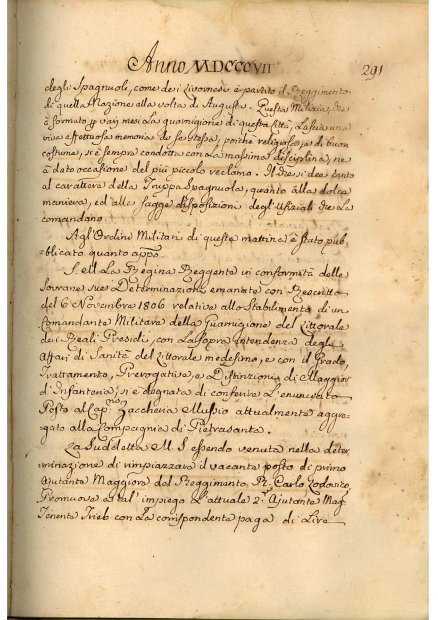 Anno MDCCCVII 291
degli Spagnuoli, come dei Livornesi è partito il Reggimento
di quella Nazione alla volta di Augusta. Questa Milizia, che
à formato p vari mesi La guarnigione di questa Città, Lascia una
viva e affettuosa memoria de se stessa, poiche religiosa, e di buon
costume, si è sempre condotta con La massima disciplina, ne
à dato occasione del più piccolo reclamo. Il che si dee tanto
al carattere della Truppa Spagnuola, quanto alla dolce
maniera, ed alle sagge disposizioni degl'Ufiziali che La
comandano.
Agl'Ordini Militari di questa mattina è stato pub-
blicato quanto appo.
S. ell La Regina Reggente in conformità delle
Sovrane sue Determinazioni emanate con Rescritto
del 6 Novembre 1806 relative allo Stabilimento di un
Comandante Militare della Guarnigione del Littorale
dei Reali Presidi, con La Sopra Intendenza degli
Affari di Sanità del Littorale medesimo, e con il Grado,
Trattamento, Prerogative, e Distinzioni di Maggiore
d'Infanteria, si è degnata di conferire L'enunciato
Posto al Cap.no Zaccheria Mussio attualmente aggre-
gato alla Compagnia di Pietrasanta.
La Suddetta M S essendo venuta nella deter-
minazione di rimpiazzare il vacante posto di primo
Ajutante Maggiore del Reggimento Rl. Carlo Lodovico,
Promuove a tal' impiego L'attuale 2° Ajutante Mag.
Tenente Trieb con La corrispondente paga di Lire